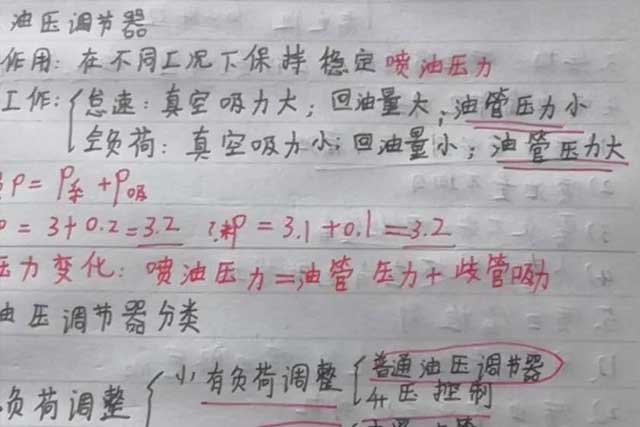 油压调节器
作用：在不同工况下保持稳定喷油压力
工作：怠速：真空吸力大；回油量大；油管压力小
全负荷：真空吸力小；回油量小；油管压力大
P = P系 + P吸
= 3+0.2=3.2 P = 3.1+0.1=3.2
压力变化：喷油压力=油管压力+歧管吸力
油压调节器分类
负荷调整 1) 有负荷调整 普通油压调节器
压控制